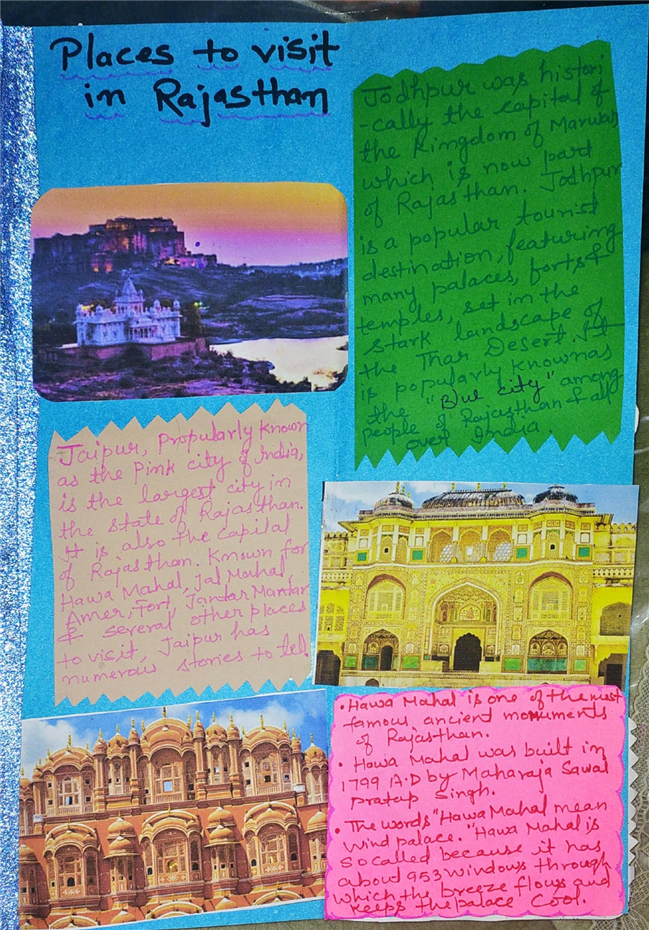 Places to visit
in Rajasthan
Jodhpur was histori
-cally the capital of
the Kingdom of Marwar,
which is now part
of Rajasthan. Jodhpur
is a popular tourist
destination, featuring
many palaces, forts &
temples, set in the
stark landscape of
the Thar Desert. It
is popularly known as
the "Blue city" among
people of Rajasthan & all
over India.
-Jaipur, Propularly known
as the Pink city of India,
is the largest city in
the state of Rajasthan.
It is also the capital
of Rajasthan. Known for
Hawa Mahal, Jal Mahal,
Amer, Fort, Jantar Mantar
& several other places
to visit, Jaipur has
numerous stories to tell
• Hawa Mahal is one of the most
famous ancient monuments
of Rajasthan.
• Hawa Mahal was built in
1799 A.D by Maharaja Sawai
Pratap Singh.
• The words "Hawa Mahal mean
wind palace. "Hawa Mahal is
so called because it has
about 953 windows through
which the breeze flows and
keeps the palace cool.